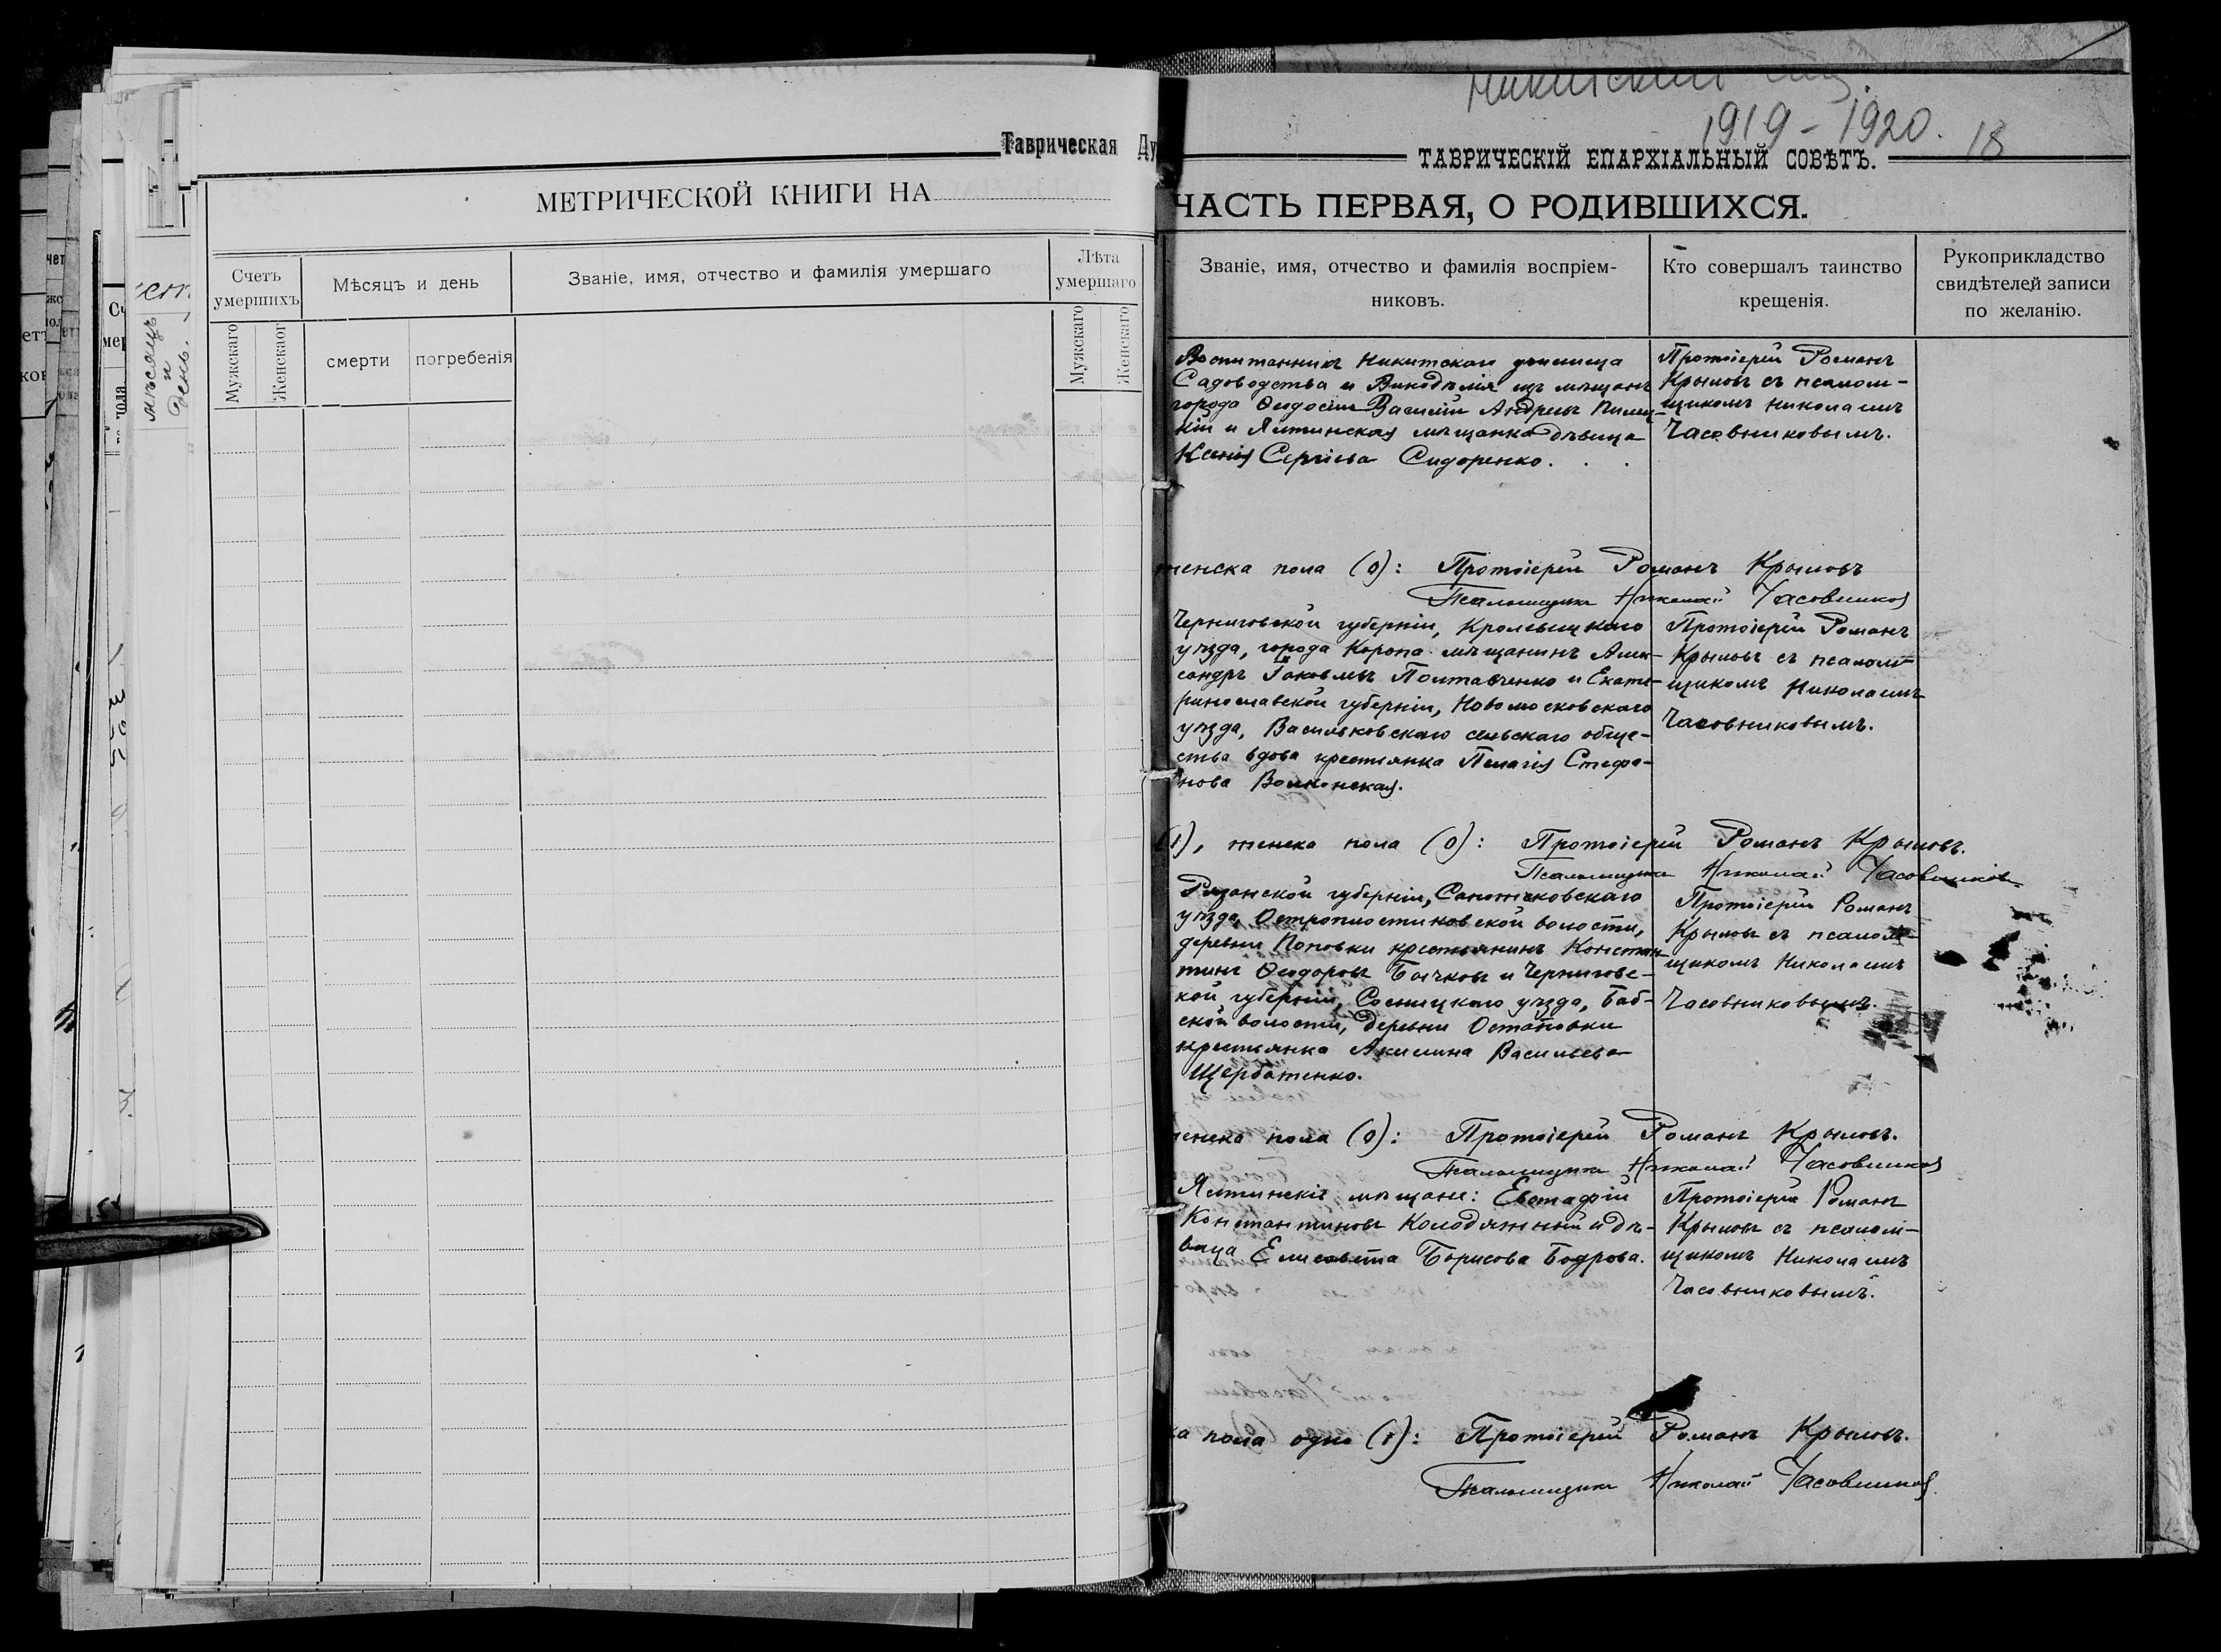 Таврическая Ду
МЕТРИЧЕСКОЙ КНИГИ НА
Счетъ умершихъ
Мѣсяцъ и день
Званіе, имя, отчество и фамилія умершаго
Лѣта умершаго
Мужскаго
Женскаог
смерти
погребенія
Мужскаго
Женскаго
мѣсяцъ
и
день.
1919-1920.
18
ТАВРИЧЕСКІЙ ЕПАРХІАЛЬНЫЙ СОВѢТЪ.
ЧАСТЬ ПЕРВАЯ, О РОДИВШИХСЯ.
Званіе, имя, отчество и фамилія воспріем-
никовъ.
Кто совершалъ таинство
крещенія.
Рукоприкладство
свидѣтелей записи
по желанію.
Воспитанникъ Никитскаго училища
Садоводства и Винодѣлія изъ мѣщанъ
города Ѳеодосіи Василій Андреевъ
кій и Ялтинская мѣщанка дѣвица
Ксенія Сергіева Сидоренко.
Протоіерей Романъ
Крыловъ съ псалом-
щикомъ Николаемъ
Часовниковымъ.
женска пола (0): Протоіерей Романъ Крыловъ
Псаломщикъ Николай Часовников
Черниговской губерніи, Кролевецкаго
уѣзда, города Коропа мѣщанинъ Алек-
сандръ Іаковлевъ Полтавченко и Екате-
ринославской губерніи, Новомосковскаго
уѣзда, Васильковскаго сельскаго обще-
ства вдова крестьянка Пелагія Стефа-
нова Волконская.
Протоіерей Романъ
Крыловъ съ псалом-
щикомъ Николаемъ
Часовниковымъ.
(1), женска пола (0): Протоіерей Романъ Крыловъ.
Псаломщикъ Николай Часовников
Рязанской губерніи, Сапожковскаго
уѣзда, Остропластиковской волости,
деревни Поповки крестьянинъ Констан-
тинъ Ѳеодоровъ Бычковъ и Черниговс-
кой губерніи, Сосницкаго уѣзда, Баб-
ской волости, деревни Остаповки
крестьянка Акилина Васильева
Щербатенко.
Протоіерей Романъ
Крыловъ съ псалом-
щикомъ Николаемъ
Часовниковымъ.
женска пола (0): Протоіерей Романъ Крыловъ.
Псаломщикъ Николай Часовников
Ялтинскіе мѣщане: Евстафій
Константиновъ Колодяжный и дѣ-
вица Елисавета Борисова Бодрова.
Протоіерей Романъ
Крыловъ съ псалом-
щикомъ Николаемъ
Часовниковымъ.
ка пола одно (1): Протоіерей Романъ Крыловъ.
Псаломщикъ Николай Часовников